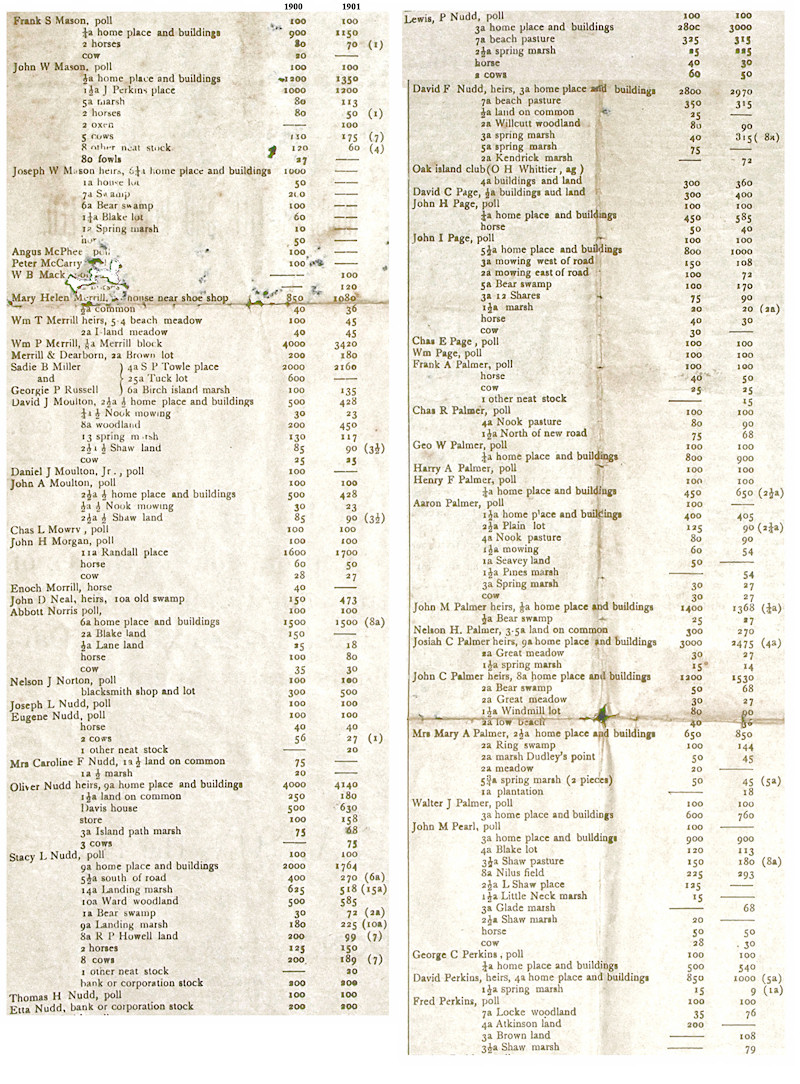 1900 1901
Frank S Mason, poll 100 100
¼a home place and buildings 900 1150
2 horses 80 70 (1)
cow 20 ——
John W Mason, poll 100 100
½a home place and buildings 1200 1350
1½a J Perkins place 1000 1200
5a marsh 80 113
2 horses 80 50 (1)
2 oxen —— 100
5 cows 110 175 (7)
8 other neat stock 120 60 (4)
80 fowls 27 ——
Joseph W Mason heirs, 6¼a home place and buildings 1000 ——
1a house lot 50 ——
7a Swamp 200 ——
6a Bear swamp 100 ——
1¼a Blake lot 60 ——
12 Spring marsh 10 ——
50 ——
Angus McPhee poll 100 ——
Peter McCarry 100 ——
W B Mack —— 100
—— 120
Mary Helen Merrill, house near shoe shop 850 1080
½a common 40 36
Wm T Merrill heirs, 5-4 beach meadow 100 45
2a Island meadow 40 45
Wm P Merrill, ½a Merrill block 4000 3420
Merrill & Dearborn, 2a Brown lot 200 180
Sadie B Miller } 4a S P Towle place 2000 2160
and } 25a Tuck lot 600 ——
Georgie P Russell } 6a Birch island marsh 100 135
David J Moulton, 2½a ½ home place and buildings 500 428
¼1 ½ Nook mowing 30 23
8a woodland 200 450
13 spring marsh 130 117
2½1 ½ Shaw land 85 90 (3½)
cow 25 25
Daniel J Moulton, Jr., poll 100 ——
John A Moulton, poll 100 100
2½a ½ home place and buildings 500 428
½a ½ Nook mowing 30 23
2½a ½ Shaw land 85 90 (3½)
Chas L Mowry, poll 100 100
John H Morgan, poll 100 100
11a Randall place 1600 1700
horse 60 50
cow 28 27
Enoch Morrill, horse 40 ——
John D Neal, heirs, 10a old swamp 150 473
Abbott Norris poll, 100 100
6a home place and buildings 1500 1500 (8a)
2a Blake land 150 ——
½a Lane land 25 18
horse 100 80
cow 35 30
Nelson J Norton, poll 100 100
blacksmith shop and lot 300 500
Joseph L Nudd, poll 100 100
Eugene Nudd, poll 100 100
horse 40 40
2 cows 56 27 (1)
1 other neat stock —— 20
Mrs Caroline F Nudd, 1a ½ land on common 75 ——
1a ½ marsh 20 ——
Oliver Nudd heirs, 9a home place and buildings 4000 4140
1½a land on common 250 180
Davis house 500 630
store 100 158
3a Island path marsh 75 68
3 cows —— 75
Stacy L Nudd, poll 100 100
9a home place and buildings 2000 1764
5½a south of road 400 270 (6a)
14a Landing marsh 625 518 (15a)
10a Ward woodland 500 585
1a Bear swamp 30 72 (2a)
9a Landing marsh 180 225 (10a)
8a R P Howell land 200 99 (7)
2 horses 125 150
8 cows 200 189 (7)
1 other neat stock —— 20
bank or corporation stock 200 200
Thomas H Nudd, poll 100 100
Etta Nudd, bank or corporation stock 200 200
Lewis, P Nudd, poll 100 100
3a home place and buildings 2800 3000
7a beach pasture 325 315
2½a spring marsh 25 225
horse 40 30
2 cows 60 50
David F Nudd, heirs, 3a home place and buildings 2800 2970
7a beach pasture 350 315
½a land on common 25 ——
2a Willcutt woodland 80 90
3a spring marsh 40 315 (8a)
5a spring marsh 75 ——
2a Kendrick marsh —— 72
Oak island club (O H Whittier, ag)
4a buildings and land 300 360
David C Page, ½a buildings aud land 300 400
John H Page, poll 100 100
¼a home place and buildings 450 585
horse 50 40
John I Page, poll 100 100
5½a home place and buildings 800 1000
3a mowing west of road 150 108
2a mowing east of road 100 72
5a Bear swamp 100 170
3a 12 Shares 75 90
1½a marsh 20 20 (2a)
horse 40 30
cow 30 ——
Chas E Page, poll 100 100
Wm Page, poll 100 100
Frank A Palmer, poll 100 100
horse 40 50
cow 25 25
1 other neat stock —— 15
Chas R Palmer, poll 100 100
4a Nook pasture 80 90
1½a North of new road 75 68
Geo W Palmer, poll 100 100
¼a home place and buildings 800 900
Harry A Palmer, poll 100 100
Henry F Palmer, poll 100 100
¼a home place and buildings 450 650 (2½a)
Aaron Palmer, poll 100 ——
1½a home place and buildings 400 405
2½a Plain lot 125 90 (2¼a)
4a Nook pasture 80 90
1½a mowing 60 54
1a Seavey land 50 ——
1½a Pines marsh —— 54
3a Spring marsh 30 27
cow 30 27
John M Palmer heirs, ½a home place and buildings 1400 1368 (¼a)
½a Bear swamp 25 27
Nelson H. Palmer, 3-5a land on common 300 270
Josiah C Palmer heirs, 9a home place and buildings 3000 2475 (4a)
2a Great meadow 30 27
1½a spring marsh 15 14
John C Palmer heirs, 8a home place and buildings 1200 1530
2a Bear swamp 50 68
2a Great meadow 30 27
1½a Windmill lot 80 90
2a low beach 40 36
Mrs Mary A Palmer, 2½a home place and buildings 650 850
2a Ring swamp 100 144
2a marsh Dudley's point 50 45
2a meadow 20 ——
spring marsh (2 pieces) 50 45 (5a)
1a plantation —— 18
Walter J Palmer, poll 100 100
3a home place and buildings 600 760
John M Pearl, poll 100 ——
3a home place and buildings 900 900
4a Blake lot 120 113
3½a Shaw pasture 150 180 (8a)
8a Nilus field 225 293
2½a L Shaw place 125 ——
1½a Little Neck marsh 15 ——
3a Glade marsh —— 68
2½a Shaw marsh 20 ——
horse 50 50
cow 28 30
George C Perkins, poll 100 100
¼a home place and buildings 500 540
David Perkins, heirs, 4a home place and buildings 850 1000 (5a)
1½a spring marsh 15 9 (1a)
Fred Perkins, poll 100 100
7a Locke woodland 35 76
4a Atkinson land 200 ——
3a Brown land —— 108
3½a Shaw marsh —— 79